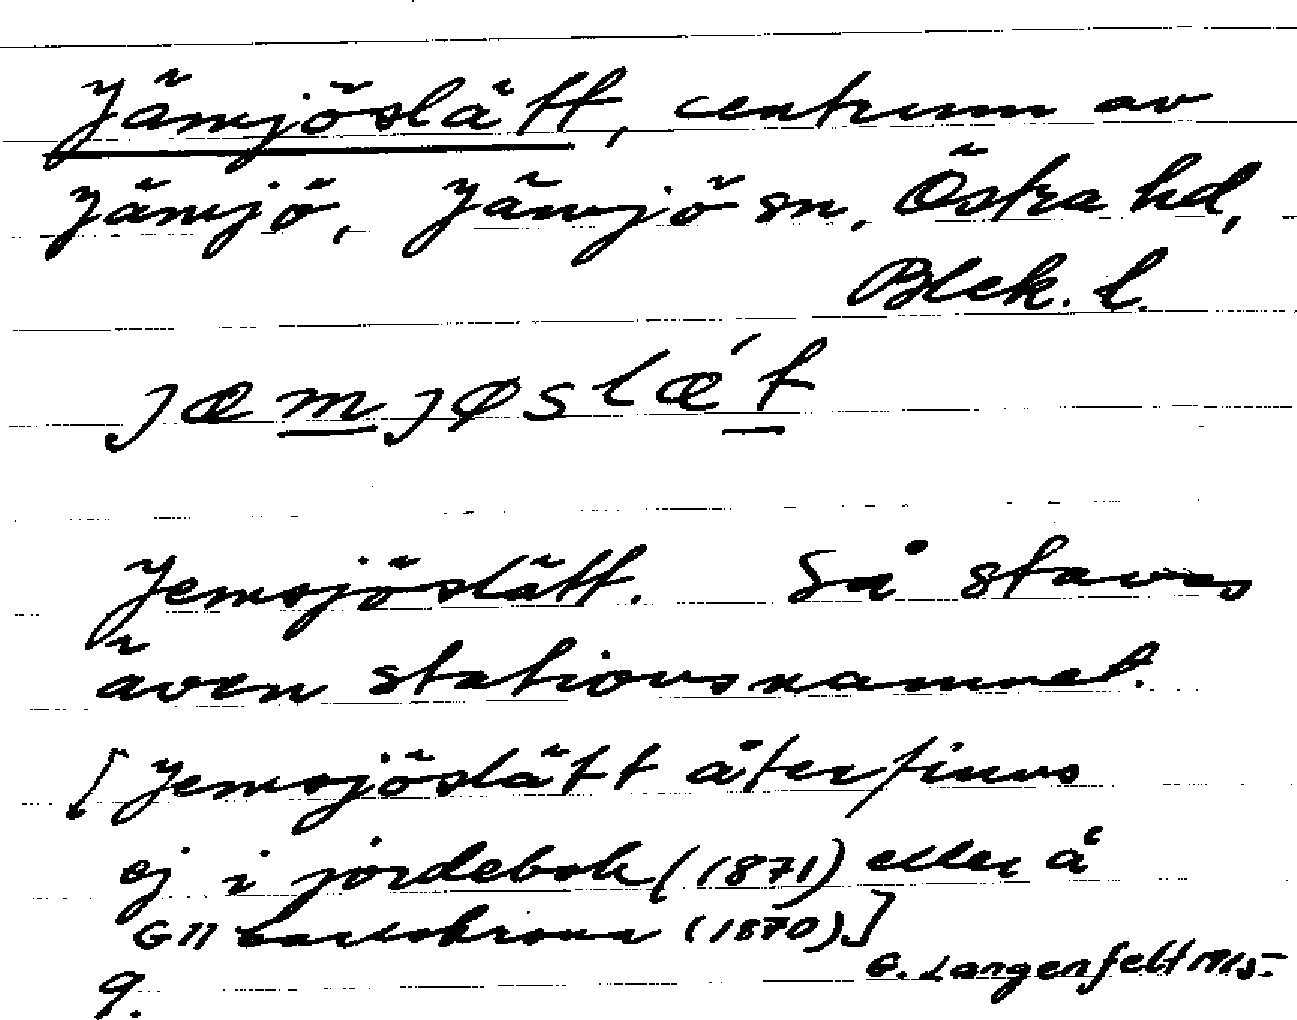 Jämjöslätt, centrum av
Jämjö, Jämjö sn, Östra hd,
Blek. l.
jæmjøslǽt
Jemsjöslätt. Så stavas
även stationsnamnet.
[Jemsjöslätt återfinns
ej i jordebok (1871) eller å
G11 Carlskrona (1870).]
G. Langenfelt 1915.
9.